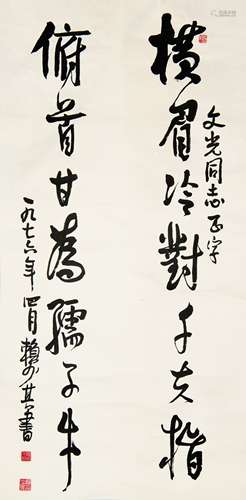 橫眉冷對千夫指
文光同志正字
俯首甘為孺子牛
一九七六年四月賴少其書